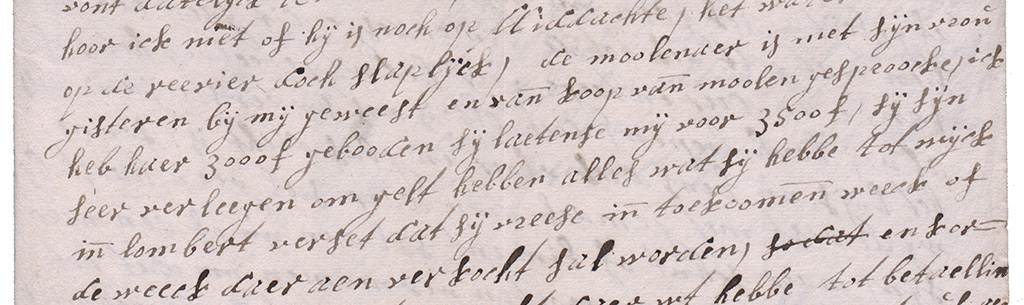 hoor ick niet of hij is noch op Middachte, het water
op de reevier doch slaplijck, de moolenaer is met sijn vrou
gisteren bij mij geweest en van koop van moolen gesproocke, ick
heb haer 3000f gebooden sij laetense mij voor 3500f, sij sijn
seer verleegen om gelt hebben alles wat sij hebbe tot wijck
in lombert verset dat sij vreese in toekoomen weeck of
de weeck daer aen verkocht sal worden, sodat en kor-
daer wt hebbe tot betaellin